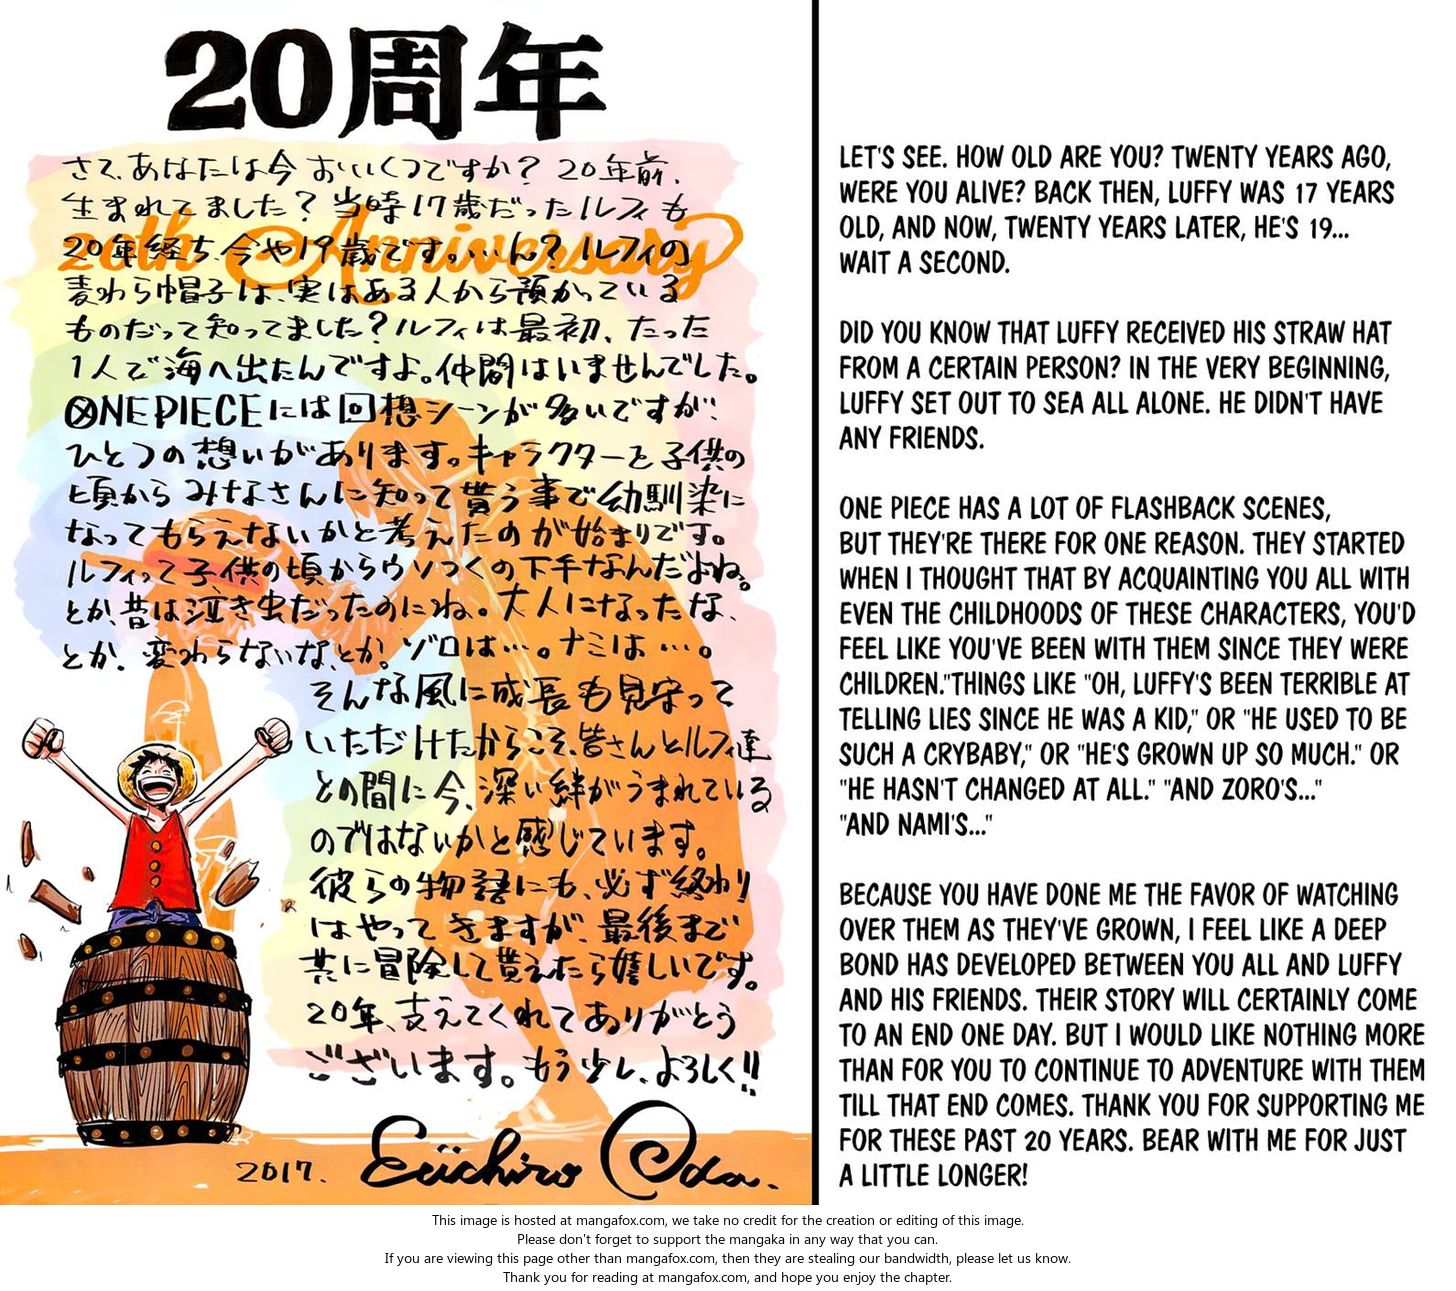 20周年
20th Anniversary
さて、あなたは今おいくつですか？20年前、
生まれてました？当時17歳だったルフィも
20年経ち今や19歳です。…ん？ルフィの
麦わら帽子は、実はある人から預かっている
ものだって知ってました？ルフィは最初、たった
1人で海へ出たんですよ。仲間はいませんでした。
ONE PIECEには回想シーンが多いですが、
ひとつの想いがあります。キャラクターを子供の
頃からみなさんに知って貰う事で幼馴染に
なってもらえないかと考えたのが始まりです。
ルフィって子供の頃からウソつくの下手なんだよね。
とか、昔は泣き虫だったのにね。大人になったな、
とか、変わらないな、とか。ゾロは…。ナミは…。
そんな風に成長も見守って
いただけたからこそ、皆さんとルフィ達
との間に今、深い絆がうまれている
のではないかと感じています。
彼らの物語にも、必ず終わり
はやってきますが、最後まで
共に冒険して貰えたら嬉しいです。
20年、支えてくれてありがとう
ございます。もう少し、よろしく!!
2017. Eiichiro Oda.
LET'S SEE. HOW OLD ARE YOU? TWENTY YEARS AGO,
WERE YOU ALIVE? BACK THEN, LUFFY WAS 17 YEARS
OLD, AND NOW, TWENTY YEARS LATER, HE'S 19...
WAIT A SECOND.
DID YOU KNOW THAT LUFFY RECEIVED HIS STRAW HAT
FROM A CERTAIN PERSON? IN THE VERY BEGINNING,
LUFFY SET OUT TO SEA ALL ALONE. HE DIDN'T HAVE
ANY FRIENDS.
ONE PIECE HAS A LOT OF FLASHBACK SCENES,
BUT THEY'RE THERE FOR ONE REASON. THEY STARTED
WHEN I THOUGHT THAT BY ACQUAINTING YOU ALL WITH
EVEN THE CHILDHOODS OF THESE CHARACTERS, YOU'D
FEEL LIKE YOU'VE BEEN WITH THEM SINCE THEY WERE
CHILDREN."THINGS LIKE "OH, LUFFY'S BEEN TERRIBLE AT
TELLING LIES SINCE HE WAS A KID," OR "HE USED TO BE
SUCH A CRYBABY," OR "HE'S GROWN UP SO MUCH." OR
"HE HASN'T CHANGED AT ALL." "AND ZORO'S..."
"AND NAMI'S..."
BECAUSE YOU HAVE DONE ME THE FAVOR OF WATCHING
OVER THEM AS THEY'VE GROWN, I FEEL LIKE A DEEP
BOND HAS DEVELOPED BETWEEN YOU ALL AND LUFFY
AND HIS FRIENDS. THEIR STORY WILL CERTAINLY COME
TO AN END ONE DAY. BUT I WOULD LIKE NOTHING MORE
THAN FOR YOU TO CONTINUE TO ADVENTURE WITH THEM
TILL THAT END COMES. THANK YOU FOR SUPPORTING ME
FOR THESE PAST 20 YEARS. BEAR WITH ME FOR JUST
A LITTLE LONGER!
This image is hosted at mangafox.com, we take no credit for the creation or editing of this image.
Please don't forget to support the mangaka in any way that you can.
If you are viewing this page other than mangafox.com, then they are stealing our bandwidth, please let us know.
Thank you for reading at mangafox.com, and hope you enjoy the chapter.